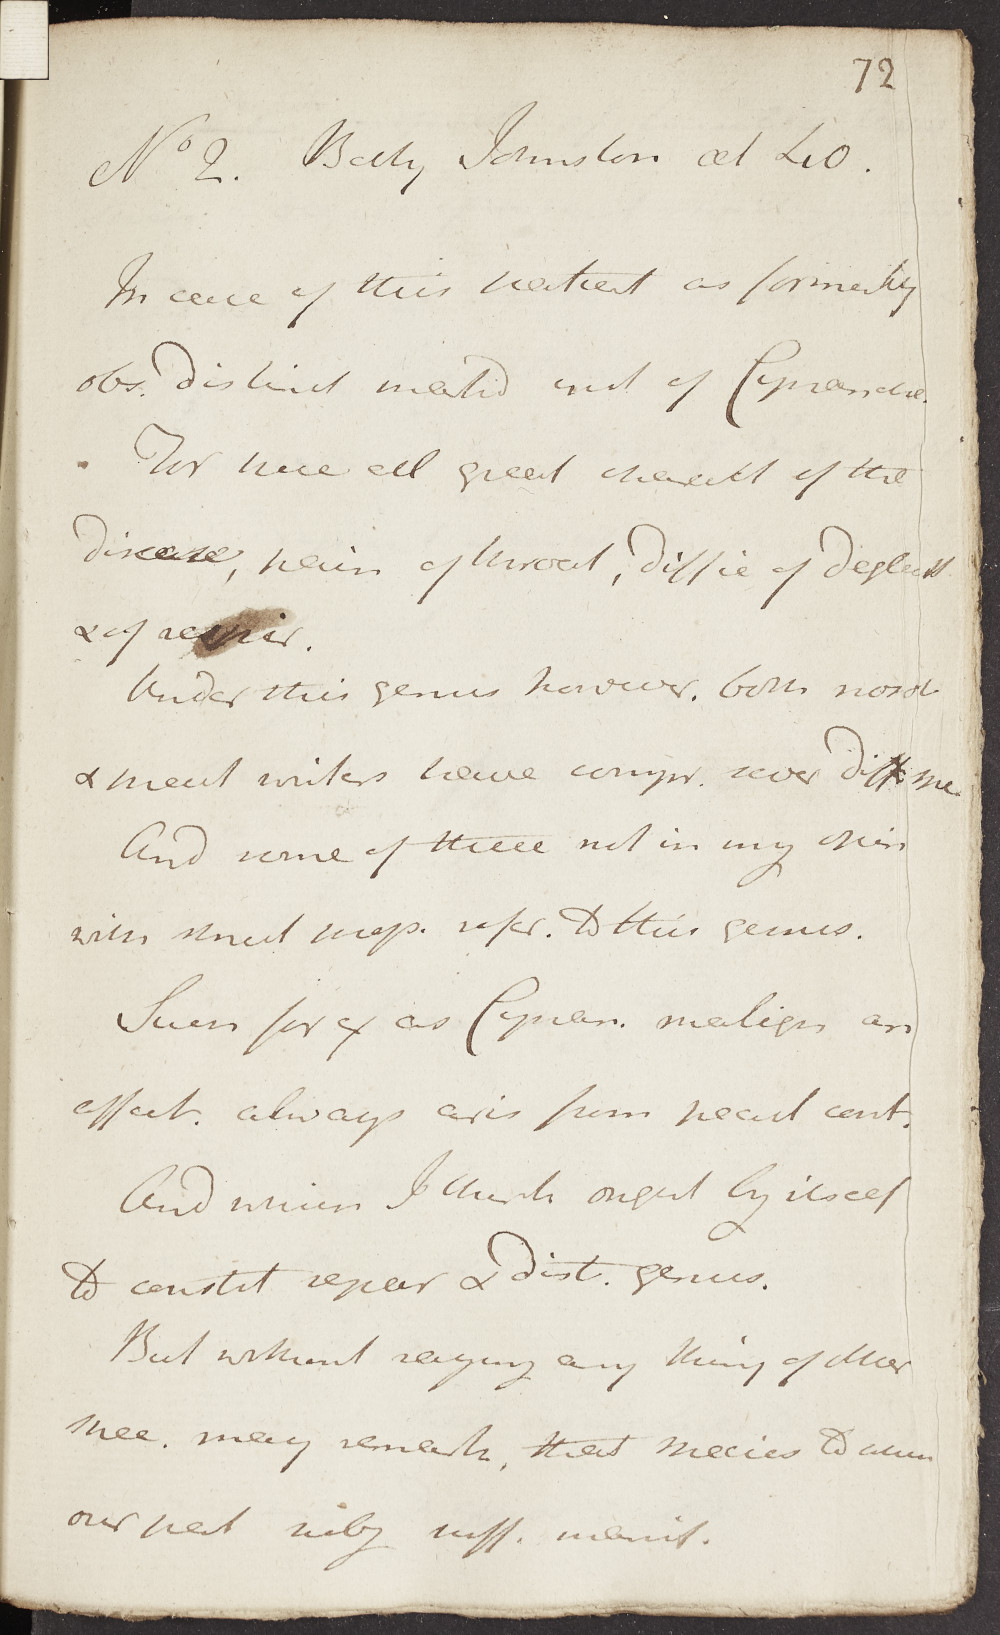 72
No 2. Betty Johnston æt 40.
In case of this patient as formerly
obs. distinct mark'd inst of Cynanche.
For here all great charact of the
disease, pain of throat, diffic of deglutt
& of respir.
Under this genus however. both nosol
& pract writers have compr. sever diff spe.
And some of these not in my opin
with strict prop. refer. to this genus.
Such for ex as Cynan. malign an
affect. always aris from pecul cont.
And which I think ought by itself
to constit separ & dist. genus.
But without saying any thing of other
spec. may remark, that species to whom
our pat subj suff. manif.